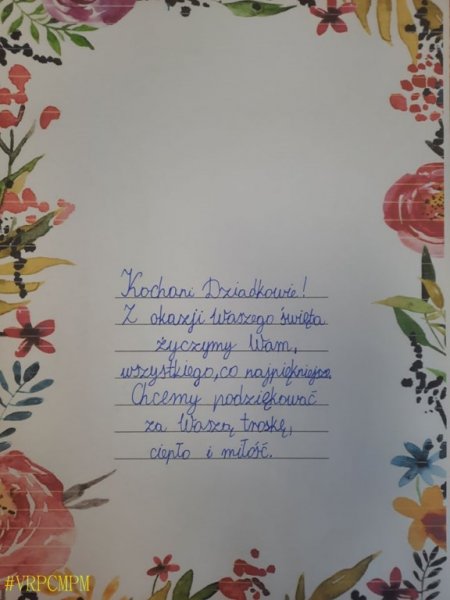 Kochani Dziadkowie!
Z okazji Waszego święta
życzymy Wam,
wszystkiego, co najpiękniejsze.
Chcemy podziękować
za Waszą troskę,
ciepło i miłość.
#VRPCMPM